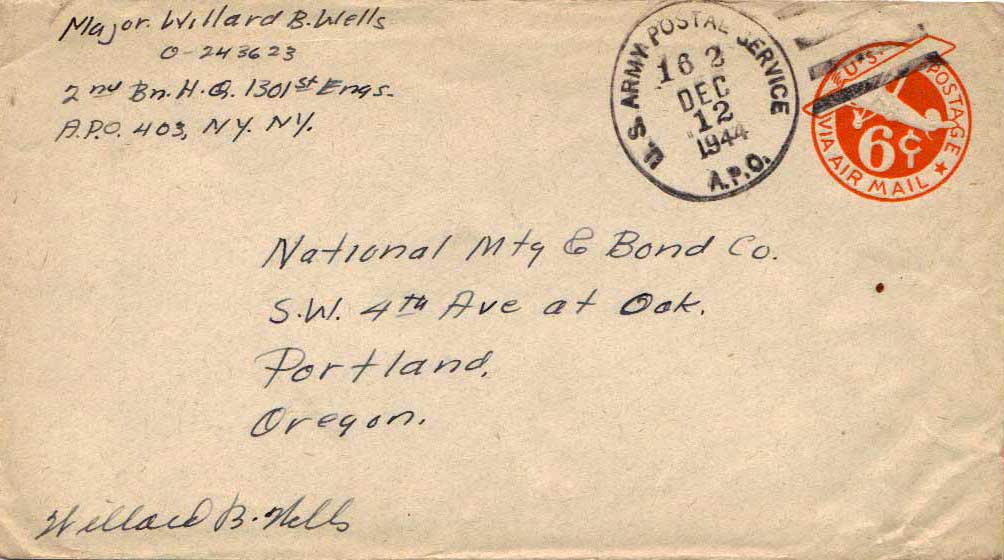 Major. Willard B. Wells
O-243623
2nd Bn. H.Q. 1301st Engs.
A.P.O. 403, N.Y. N.Y.
U.S. ARMY POSTAL SERVICE
16 2
DEC
12
1944
A.P.O.
U.S. POSTAGE
6¢
VIA AIR MAIL
National Mtg & Bond Co.
S.W. 4th Ave at Oak.
Portland,
Oregon.
Willard B. Wells